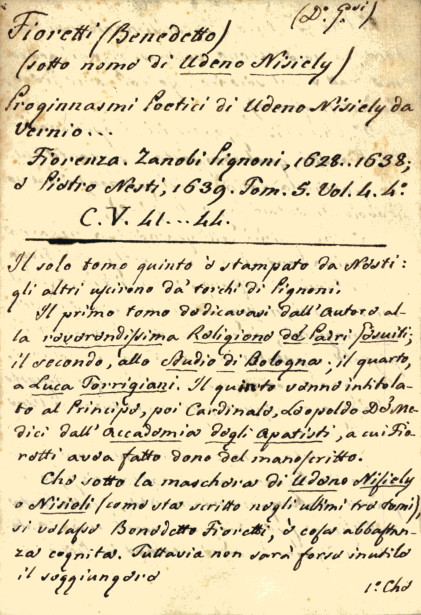 (De' Gesi)
Fioretti (Benedetto)
(sotto nome di Udeno Nisiely)
Proginnasmi Poetici di Udeno Nisiely da
Vernio...
Fiorenza. Zanobi Pignoni, 1628..1638;
e Pietro Nesti, 1639. Tom. 5. Vol. 4. 4.º
C. V. 41...44.
Il solo tomo quinto è stampato da Nesti:
gli altri uscirono da' torchi di Pignoni.
Il primo tomo dedicavasi dall'Autore al-
la reverendissima Religione de' Padri Gesuiti;
il secondo, allo Studio di Bologna; il quarto,
a Luca Torrigiani. Il quinto venne intitola-
to al Principe, poi Cardinale, Leopoldo De' Me-
dici dall'Accademia degli Apatisti, a cui Fio-
retti avea fatto dono del manoscritto.
Che sotto la maschera di Udeno Nisiely
o Nisieli (come sta scritto negli ultimi tre tomi),
si velasse Benedetto Fioretti, è cosa abbastan-
za cognita. Tuttavia non sarà forse inutile
il soggiungere
1.º Che